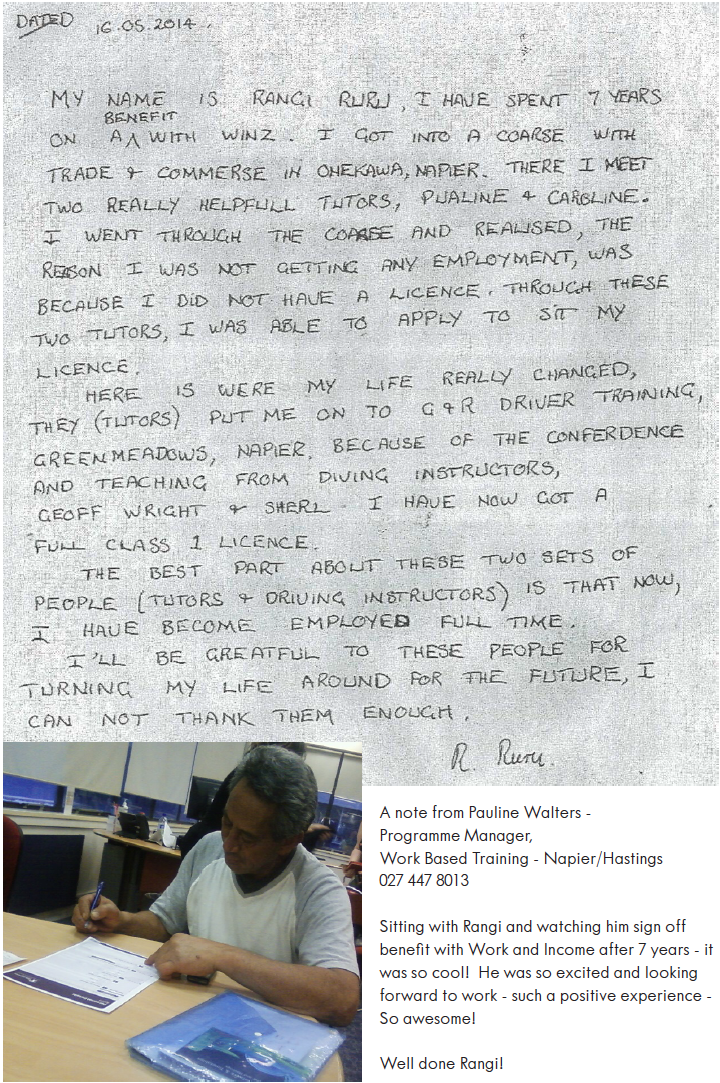 DATED 16.05.2014.
MY NAME IS RANGI RURU, I HAVE SPENT 7 YEARS
BENEFIT
ON A ^ WITH WINZ. I GOT INTO A COARSE WITH
TRADE & COMMERSE IN ONEKAWA, NAPIER. THERE I MEET
TWO REALLY HELPFULL TUTORS, PUALINE & CAROLINE.
I WENT THROUGH THE COARSE AND REALISED, THE
REASON I WAS NOT GETTING ANY EMPLOYMENT, WAS
BECAUSE I DID NOT HAVE A LICENCE. THROUGH THESE
TWO TUTORS, I WAS ABLE TO APPLY TO SIT MY
LICENCE.
HERE IS WERE MY LIFE REALLY CHANGED,
THEY (TUTORS) PUT ME ON TO G & R DRIVER TRAINING,
GREENMEADOWS, NAPIER. BECAUSE OF THE CONFERDENCE
AND TEACHING FROM DIVING INSTRUCTORS,
GEOFF WRIGHT & SHERL I HAVE NOW GOT A
FULL CLASS 1 LICENCE.
THE BEST PART ABOUT THESE TWO SETS OF
PEOPLE (TUTORS & DRIVING INSTRUCTORS) IS THAT NOW,
I HAVE BECOME EMPLOYED FULL TIME.
I'LL BE GREATFUL TO THESE PEOPLE FOR
TURNING MY LIFE AROUND FOR THE FUTURE, I
CAN NOT THANK THEM ENOUGH.
R. Ruru.
A note from Pauline Walters -
Programme Manager,
Work Based Training - Napier/Hastings
027 447 8013
Sitting with Rangi and watching him sign off
benefit with Work and Income after 7 years - it
was so cool! He was so excited and looking
forward to work - such a positive experience -
So awesome!
Well done Rangi!